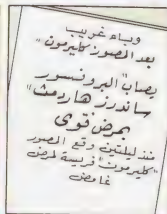 وباء غريب
بعد المصور "كليرمون"
يصاب "البروفسور
ساندرز هاردمث"
بمرض قوى
منذ ليلتين وقع المصور
"كليرمون" فريسة لمرض
غامض